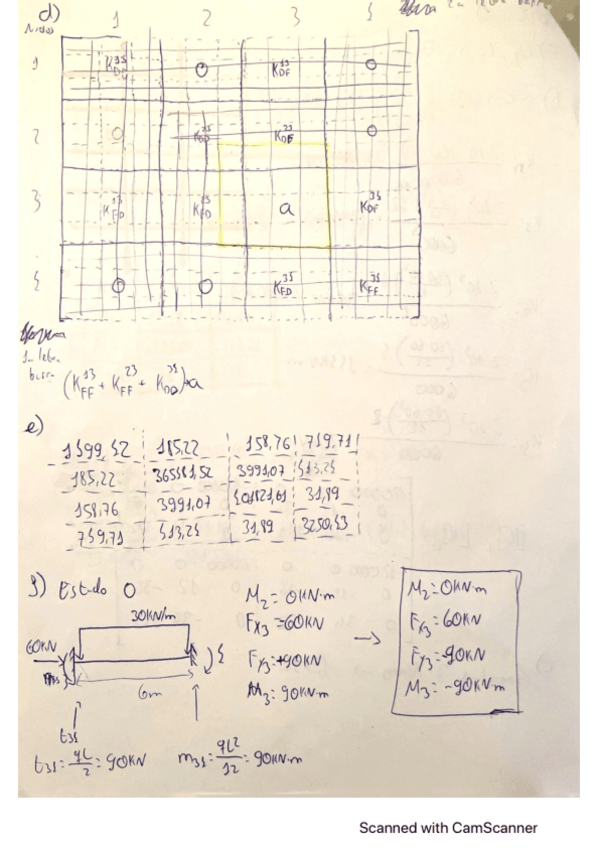 d)
1 2 3 4
Nodos
1 K_DD^13 0 K_DF^13 0
2 0 K_DD^23 K_DF^23 0
3 K_FD^13 K_FD^23 a K_DF^34
4 0 0 K_FD^34 K_FF^34
1ª letra
barra
(K_FF^13 + K_FF^23 + K_DD^34)=a
e)
1499,42 185,22 158,76 749,71
185,22 365581,52 3991,07 513,25
158,76 3991,07 31,89
749,71 513,25 31,89 3250,43
f) Estado 0
30KN/m
60KN
6m
M2=0KN·m
Fx3=60KN
Fy3=+90KN
M3=90KN·m
→
M2=0KN·m
Fx3=60KN
Fy3=-90KN
M3=-90KN·m
t34
t34=qL/2=90KN m34=qL²/12=90KN·m
Scanned with CamScanner